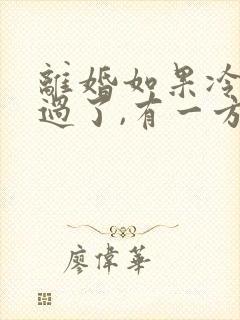 離婚如果冷
過了,有一方
廖偉華